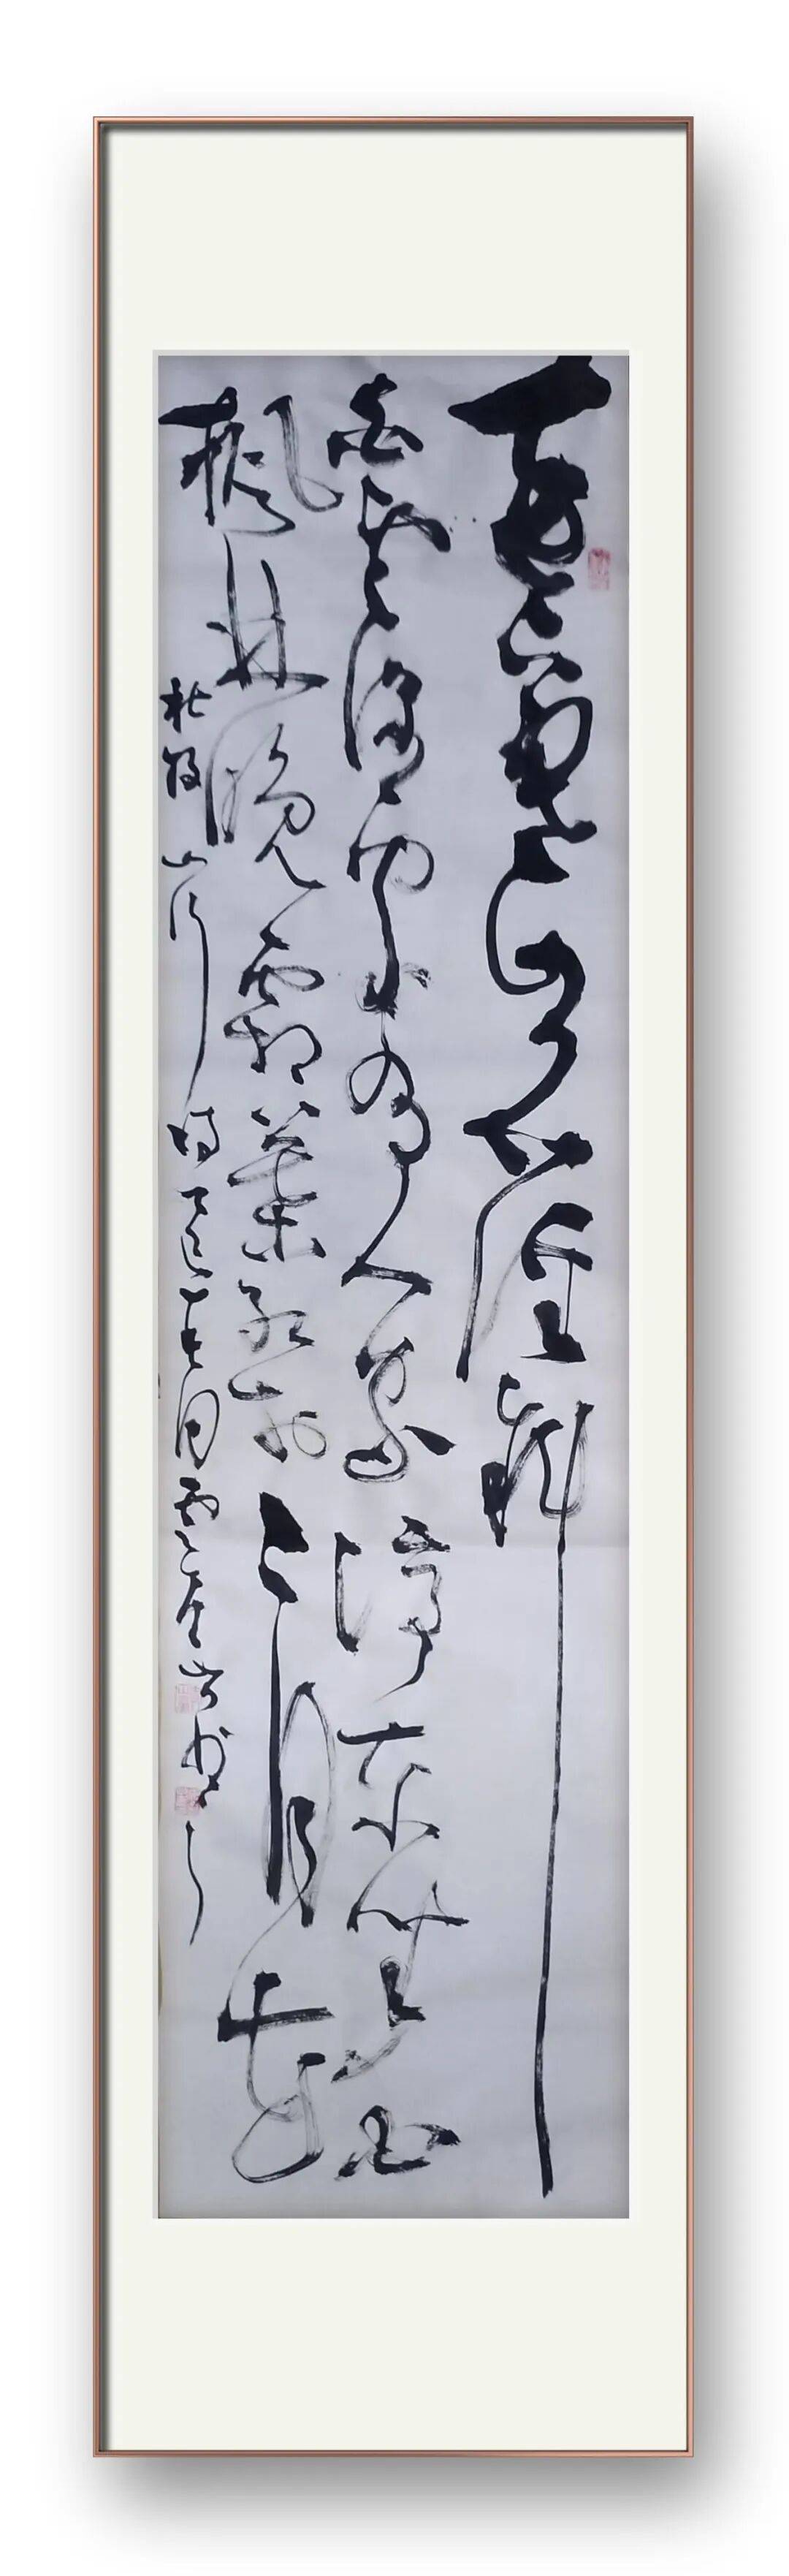 遠上寒山石徑斜
白雲深處有人家停車坐愛
楓林晚霜葉紅於二月花
杜牧山行詩